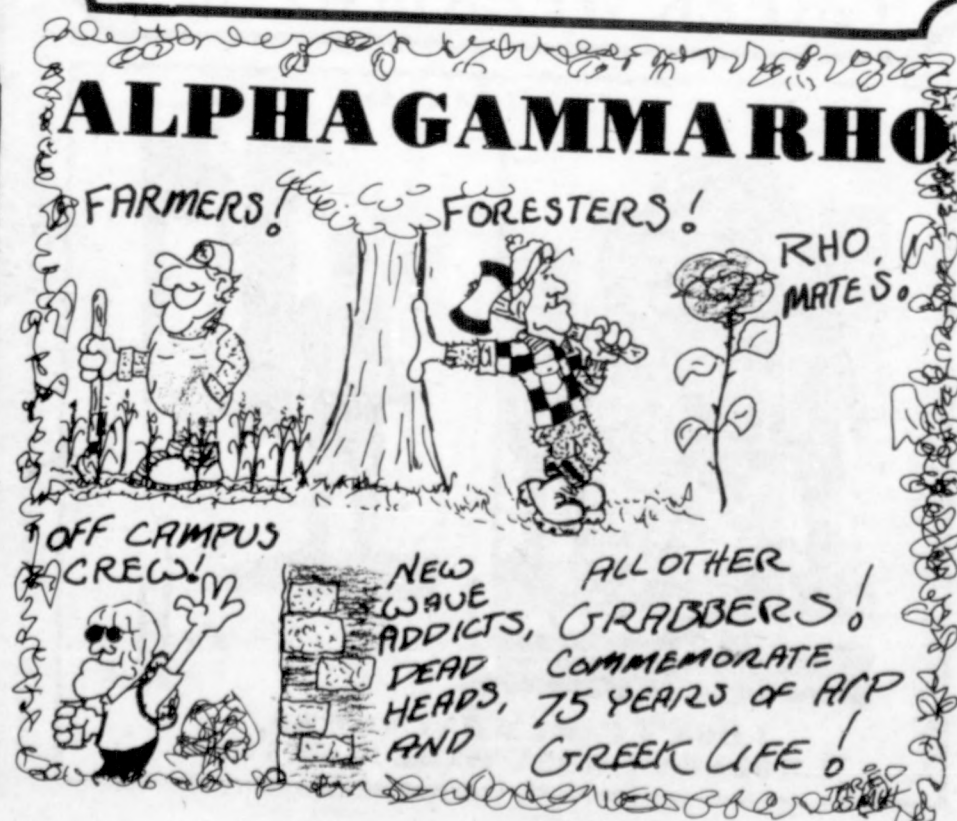 ALPHA GAMMA RHO
FARMERS!
FORESTERS!
RHO,
MATES.
OFF CAMPUS
CREW!
NEW
WAVE
ADDICTS,
DEAD
HEADS,
AND
ALL OTHER
GRABBERS!
COMMEMORATE
75 YEARS OF AΓΡ
GREEK LIFE!